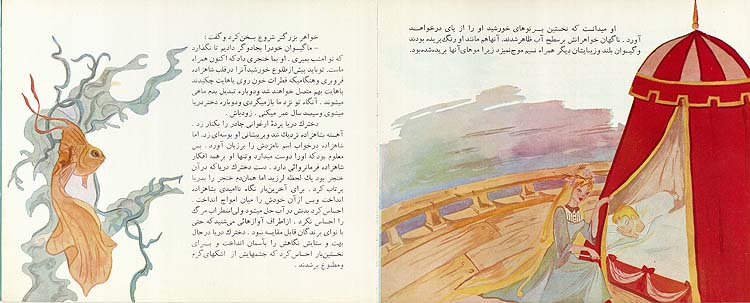 او میدانست که نخستین پرتوهای خورشید او را از پای درخواهد
آورد . ناگهان خواهرانش برسطح آب ظاهرشدند. آنهاهم مانند او رنگ‌پریده بودند
وگیسوان بلند وزیبایشان دیگر همراه نسیم موج‌نمیزد زیرا موهای‌آنها بریده‌شده‌بود.
خواهر بزرگتر شروع بسخن‌کرد وگفت :
- ماگیسوان خودرا بجادوگر دادیم تا نگذارد
که تو امشب بمیری . او بما خنجری دادکه اکنون همراه
ماست. توباید پیش‌ازطلوع خورشیدآنرا درقلب شاهزاده
فروبری وهنگامیکه قطرات خون روی پاهایت چکیدند
پاهایت بهم متصل خواهند شد ودوباره تبدیل بدم ماهی
میشوند . آنگاه تو نزد ما بازمیگردی ودوباره دختردریا
میشوی وسیصد سال عمر میکنی . زودباش.
دخترك دریا پردهٔ ارغوانی چادر را بکنار زد .
آهسته بشاهزاده نزدیك شد وبرپیشانی او بوسه‌ای زد. اما
شاهزاده درخواب اسم نامزدش را برزبان آورد . پس
معلوم بودکه اورا دوست میدارد وتنها او برهمه افکار
شاهزاده فرمانروائی دارد . دست دخترك دریاکه درآن
خنجر بود یك لحظه لرزید اما همان‌دم خنجر را بدریا
پرتاب کرد . برای آخرین‌بار نگاه ناامیدی بشاهزاده
انداخت وپس ازآن خودش را میان امواج انداخت .
احساس کرد بدنش در آب حل میشود ولی‌اضطراب مرگ
را احساس نکرد . ازاطراف آوازهائی می‌شنید‌که حتی
با نوای پرندگان قابل مقایسه نبود . دخترك دریا درحال
بهت و ستایش نگاهش را بآسمان انداخت و برای
نخستین‌بار احساس کرد که چشمهایش از اشکهای‌گرم
ومطبوع پرشدند .